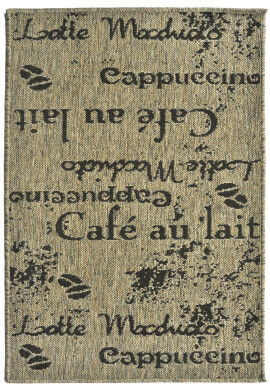 Latte Macchiato
Cappuccino
Café au lait
Latte Macchiato
Cappuccino
Café au lait
Latte Macchiato
Cappuccino